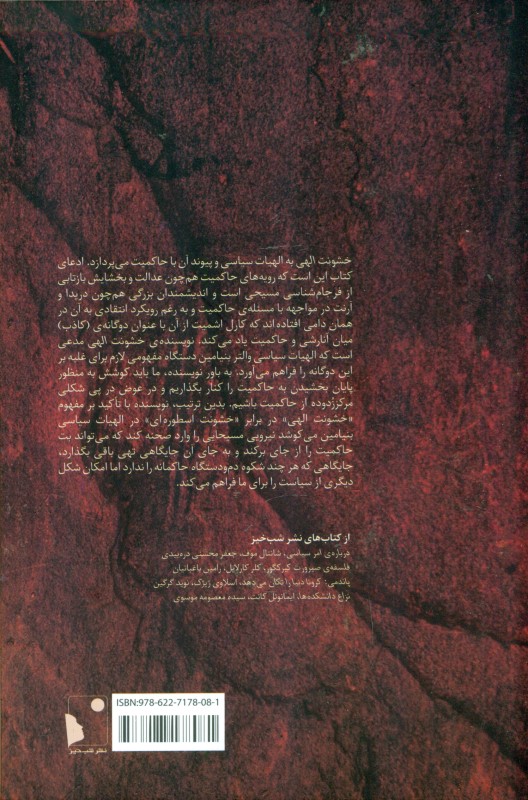 خشونت الهی به الهیات سیاسی و پیوند آن با حاکمیت می‌پردازد. ادعای
کتاب این است که رویه‌های حاکمیت هم‌چون عدالت و بخشایش بازتابی
از فرجام‌شناسی مسیحی است و اندیشمندان بزرگی هم‌چون دریدا و
آرنت در مواجهه با مسئله‌ی حاکمیت و به رغم رویکرد انتقادی به آن در
همان دامی افتاده‌اند که کارل اشمیت از آن با عنوان دوگانه‌ی (کاذب)
میان آنارشی و حاکمیت یاد می‌کند. نویسنده‌ی خشونت الهی مدعی
است که الهیات سیاسی والتر بنیامین دستگاه مفهومی لازم برای غلبه بر
این دوگانه را فراهم می‌آورد. به باور نویسنده، ما باید کوشش به منظور
پایان بخشیدن به حاکمیت را کنار بگذاریم و در عوض در پی شکلی
مرکززدوده از حاکمیت باشیم. بدین ترتیب، نویسنده با تأکید بر مفهوم
«خشونت الهی» در برابر «خشونت اسطوره‌ای» در الهیات سیاسی
بنیامین می‌کوشد نیرویی مسیحایی را وارد صحنه کند که می‌تواند بت
حاکمیت را از جای برکند و به جای آن جایگاهی تهی باقی بگذارد،
جایگاهی که هر چند شکوه دم‌ودستگاه حاکمانه را ندارد اما امکان شکل
دیگری از سیاست را برای ما فراهم می‌کند.
از کتاب‌های نشر شب‌خیز
درباره‌ی امر سیاسی، شانتال موف، جعفر محسنی دره‌بیدی
فلسفه‌ی صیرورت کیرکگور، کلر کارلایل، رامین باغبانیان
پاندمی: کرونا دنیا را تکان می‌دهد، اسلاوی ژیژک، نوید گرگین
نزاع دانشکده‌ها، ایمانوئل کانت، سیده معصومه موسوی
ISBN:978-622-7178-08-1
نشر شب‌خیز